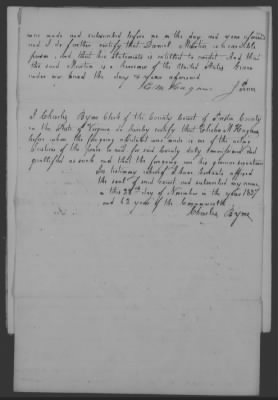 was made and subscribed before me on the day and year aforesaid
and I do further certify that Daniel is a credible
person, and that his Statement is entitled to credit And that
the said is a of the United States Given
under my hand the day & year aforesaid
E. M. J. Peace
I Charles Byrne Clerk of the County Court of County
in the State of Virginia do hereby certify that Elisha M.
before whom the foregoing affidavit was made is one of the acting
Justices of the Peace in and for said County duly commissioned and
qualified as such and that the foregoing are his genuine signatures
In testimony whereof I have hereunto affixed
the seal of said court and subscribed my name
on this 28th day of November in the year 1837
and 62 year of the Commonwealth
Charles Byrne